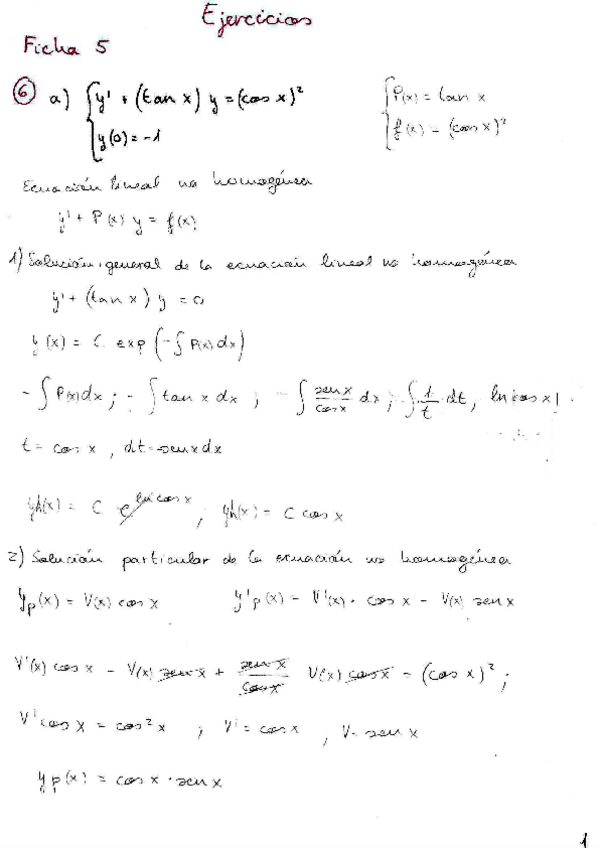 Ejercicios
Ficha 5
6 a) { y' + (tan x) y = (cos x)² { P(x) = tan x
y(0) = -1 f(x) = (cos x)²
Ecuación lineal no homogénea
y' + P(x) y = f(x)
1) Solución general de la ecuación lineal no homogénea
y' + (tan x) y = 0
y(x) = C exp (-∫ P(x) dx)
-∫ P(x) dx ; -∫ tan x dx ; -∫ sen x / cos x dx ; ∫ 1/t dt, ln|cos x|
t = cos x , dt = -sen x dx
yh(x) = C e^(ln cos x) ; yh(x) = C cos x
2) Solución particular de la ecuación no homogénea
yp(x) = V(x) cos x y'p(x) = V'(x) · cos x - V(x) sen x
V'(x) cos x - V(x) sen x + sen x / cos x V(x) cos x = (cos x)² ;
V' cos x = cos² x ; V' = cos x , V = sen x
yp(x) = cos x · sen x
1